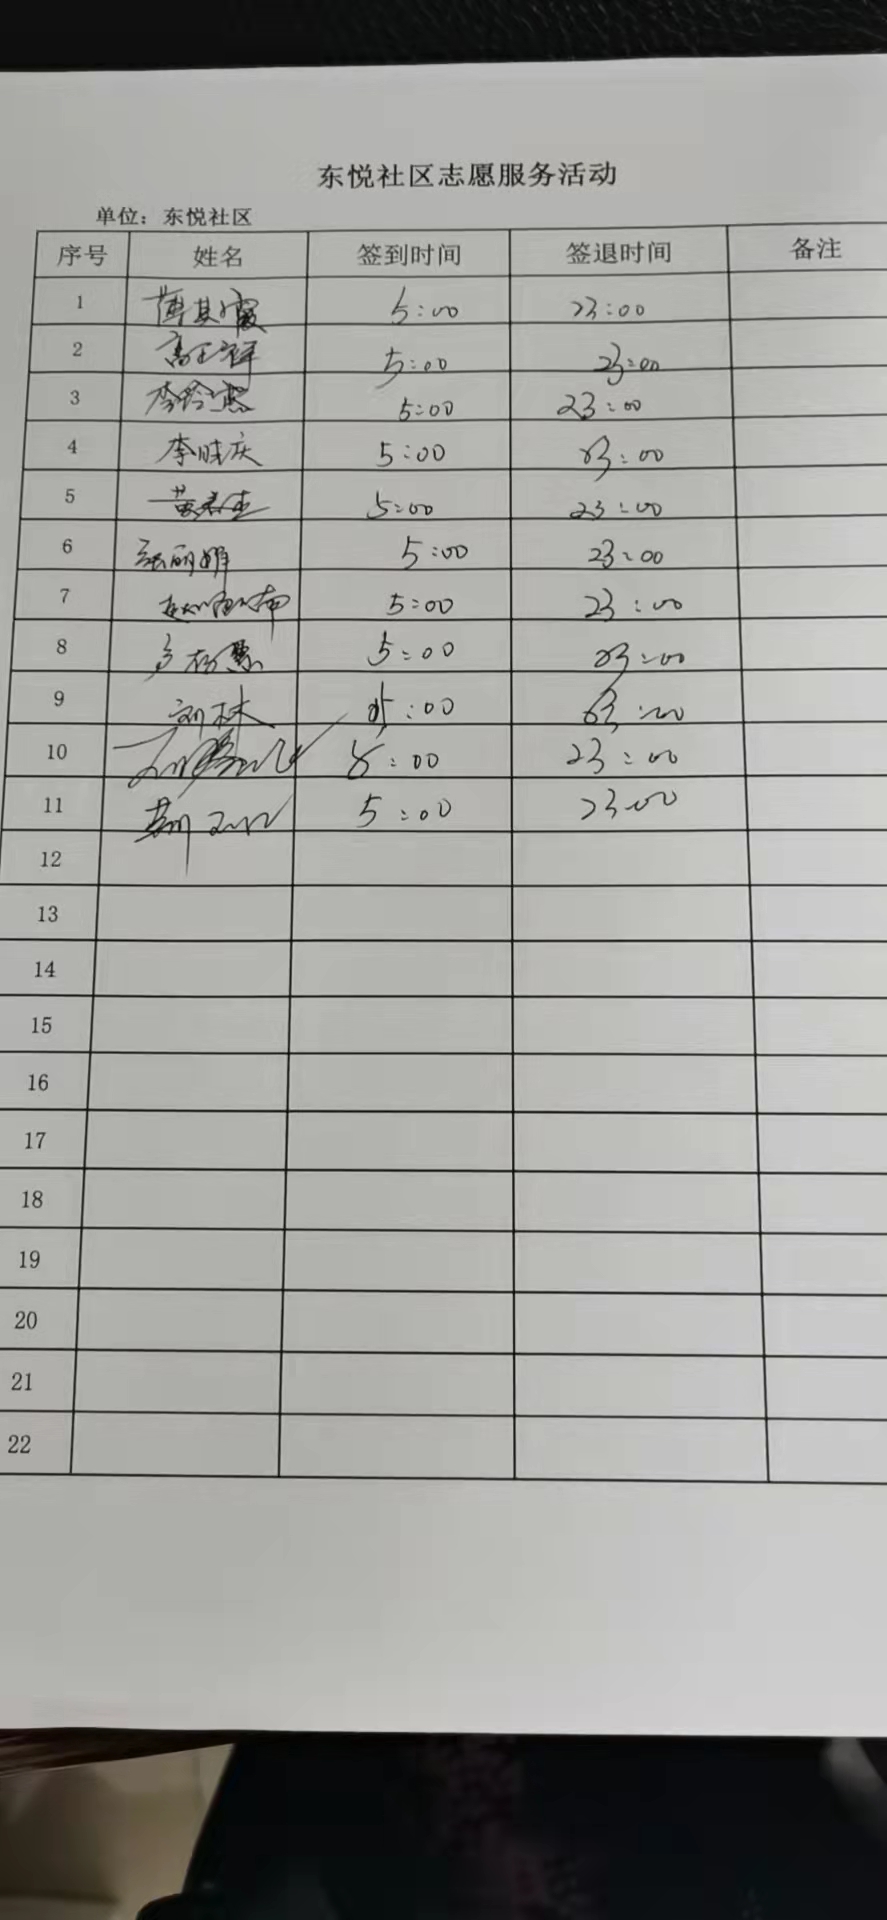 东悦社区志愿服务活动
单位：东悦社区
序号 姓名 签到时间 签退时间 备注
1 薄其霞 5:00 23:00
2 5:00 23:00
3 5:00 23:00
4 李晓庆 5:00 23:00
5 5:00 23:00
6 张丽娜 5:00 23:00
7 5:00 23:00
8 5:00 23:00
9 刘林 5:00 23:00
10 5:00 23:00
11 5:00 23:00
12
13
14
15
16
17
18
19
20
21
22